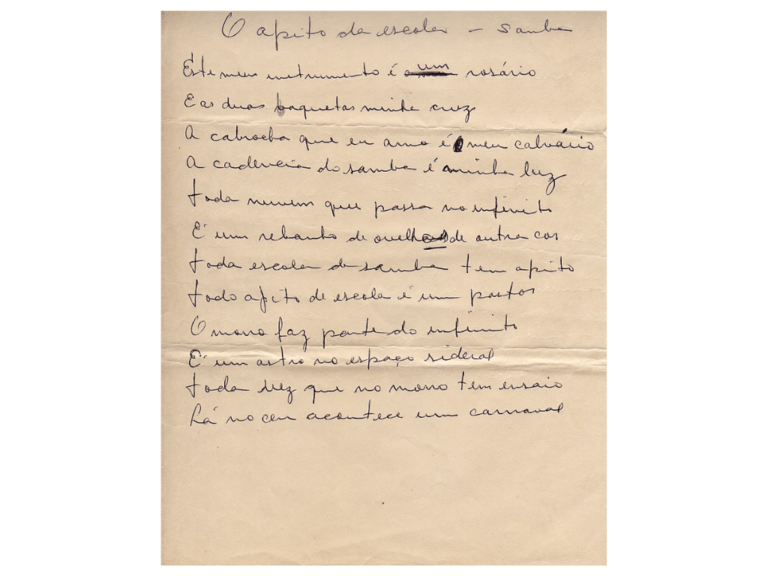 O apito da escola – samba
Este meu instrumento é um rosário
E as duas baquetas minha cruz
A cabrocha que eu amo é o meu calvário
A cadencia do samba é minha luz
toda nuvem que passa no infinito
É um rebanho de ovelhas de outra cor
toda escola de samba tem apito
todo apito de escola é um pastor
O morro faz parte do infinito
É um astro no espaço sideral
toda vez que no morro tem ensaio
Lá no ceu acontece um carnaval